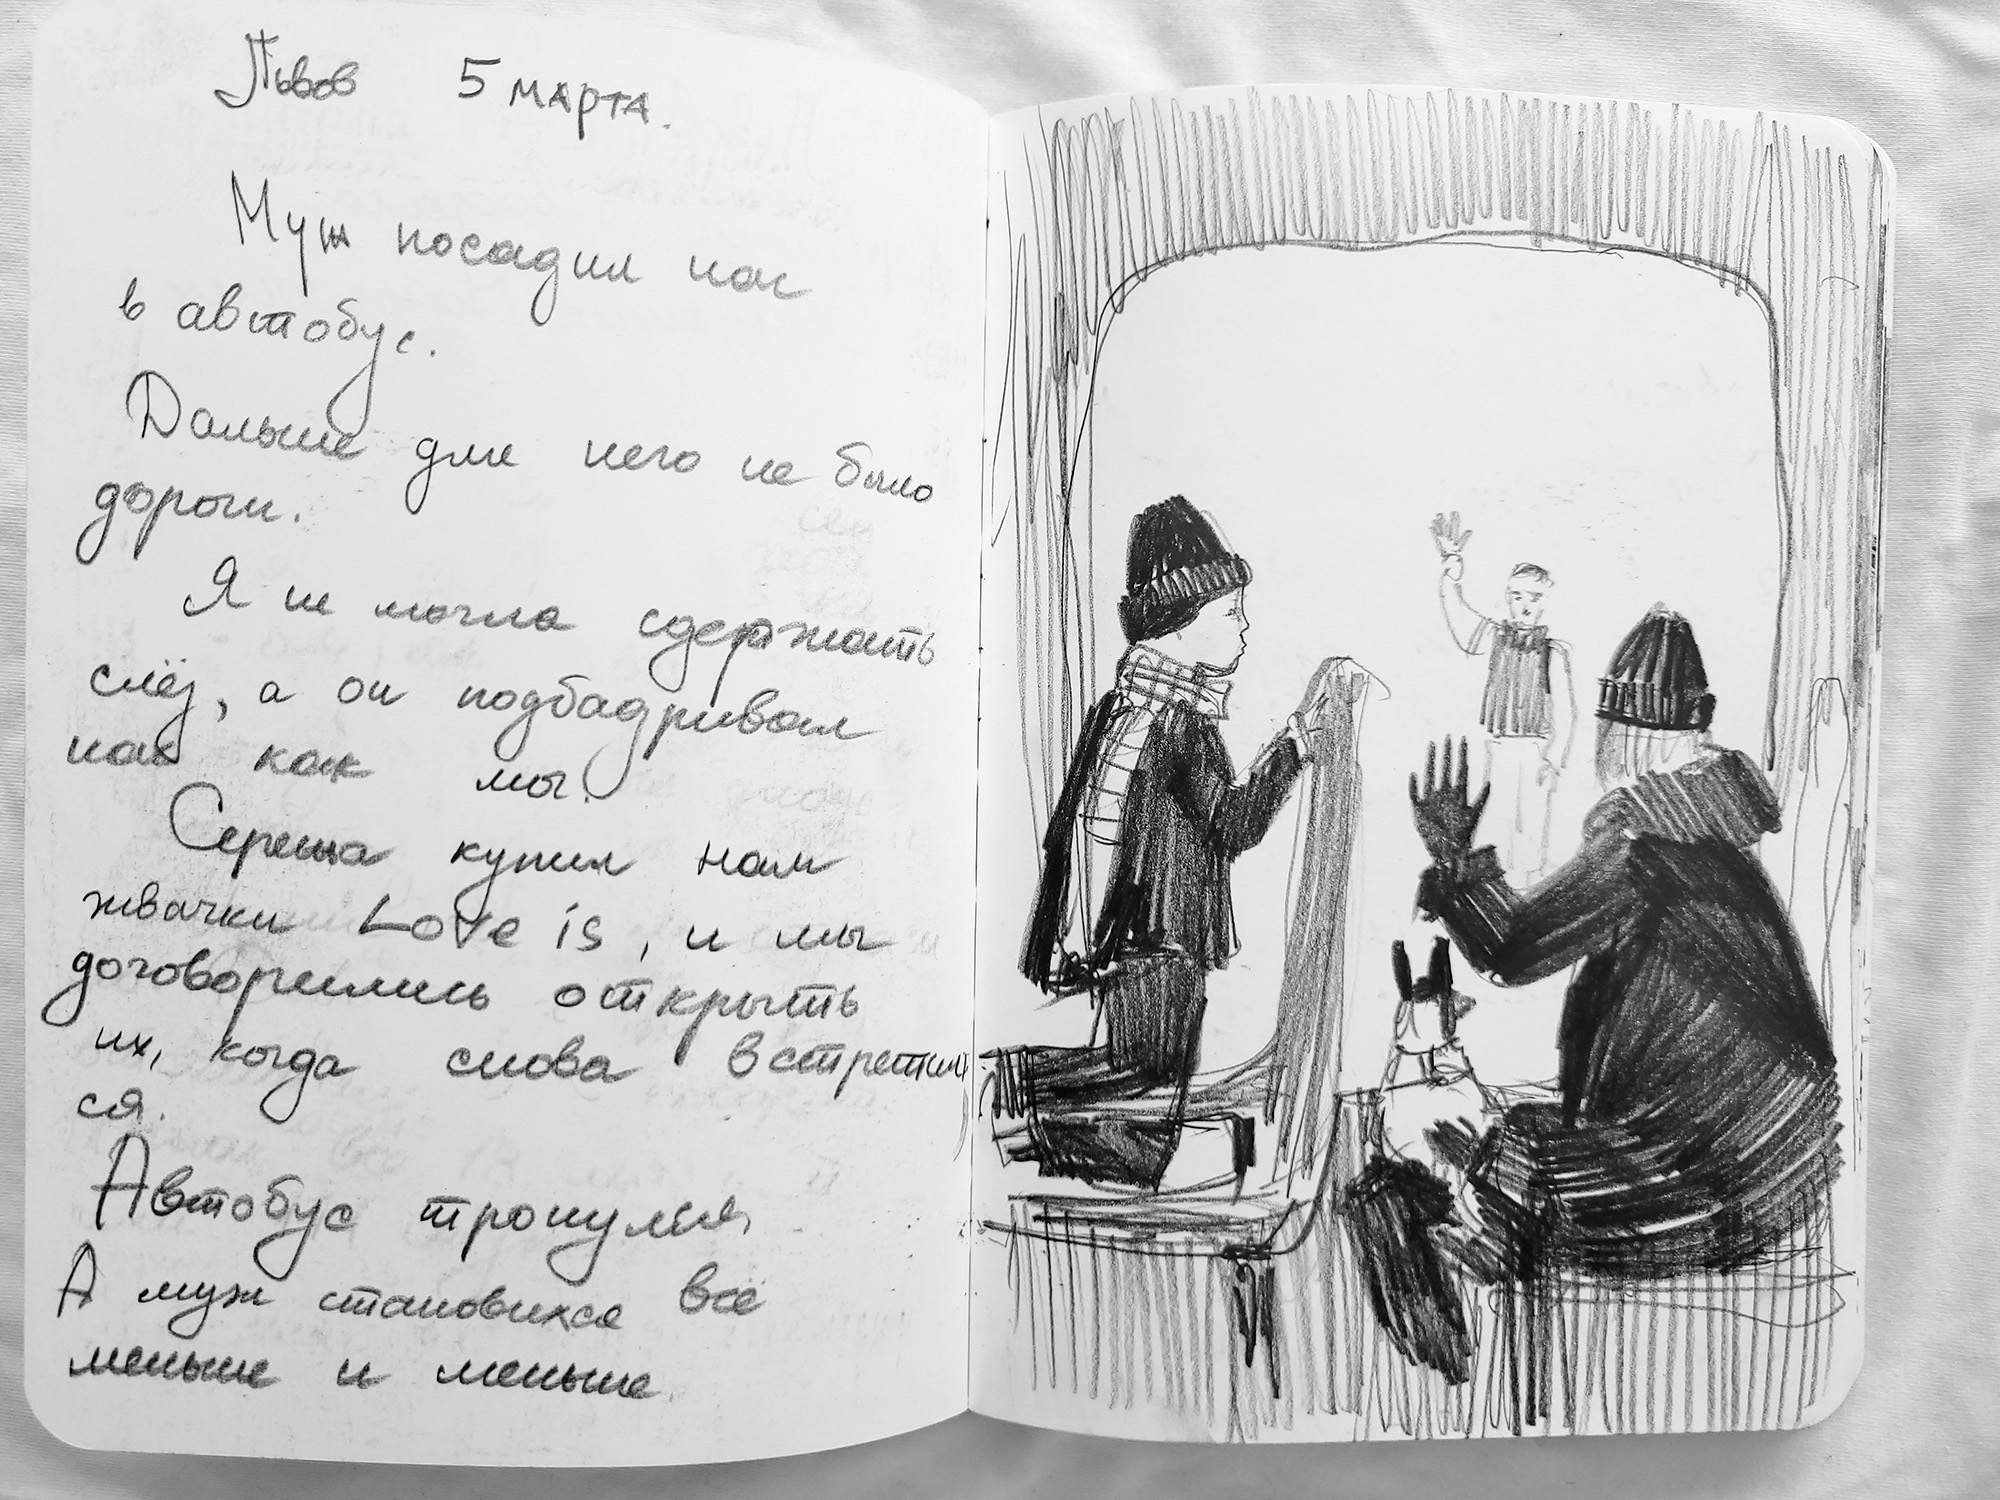 Львов 5 марта.
Муж посадил нас
в автобус.
Дальше для него не было
дороги.
Я не могла сдержать
слёз, а он подбадривал
нас как мог.
Сережа купил нам
жвачки Love is, и мы
договорились открыть
их, когда снова встретим
ся.
Автобус тронулся,
А муж становился всё
меньше и меньше.